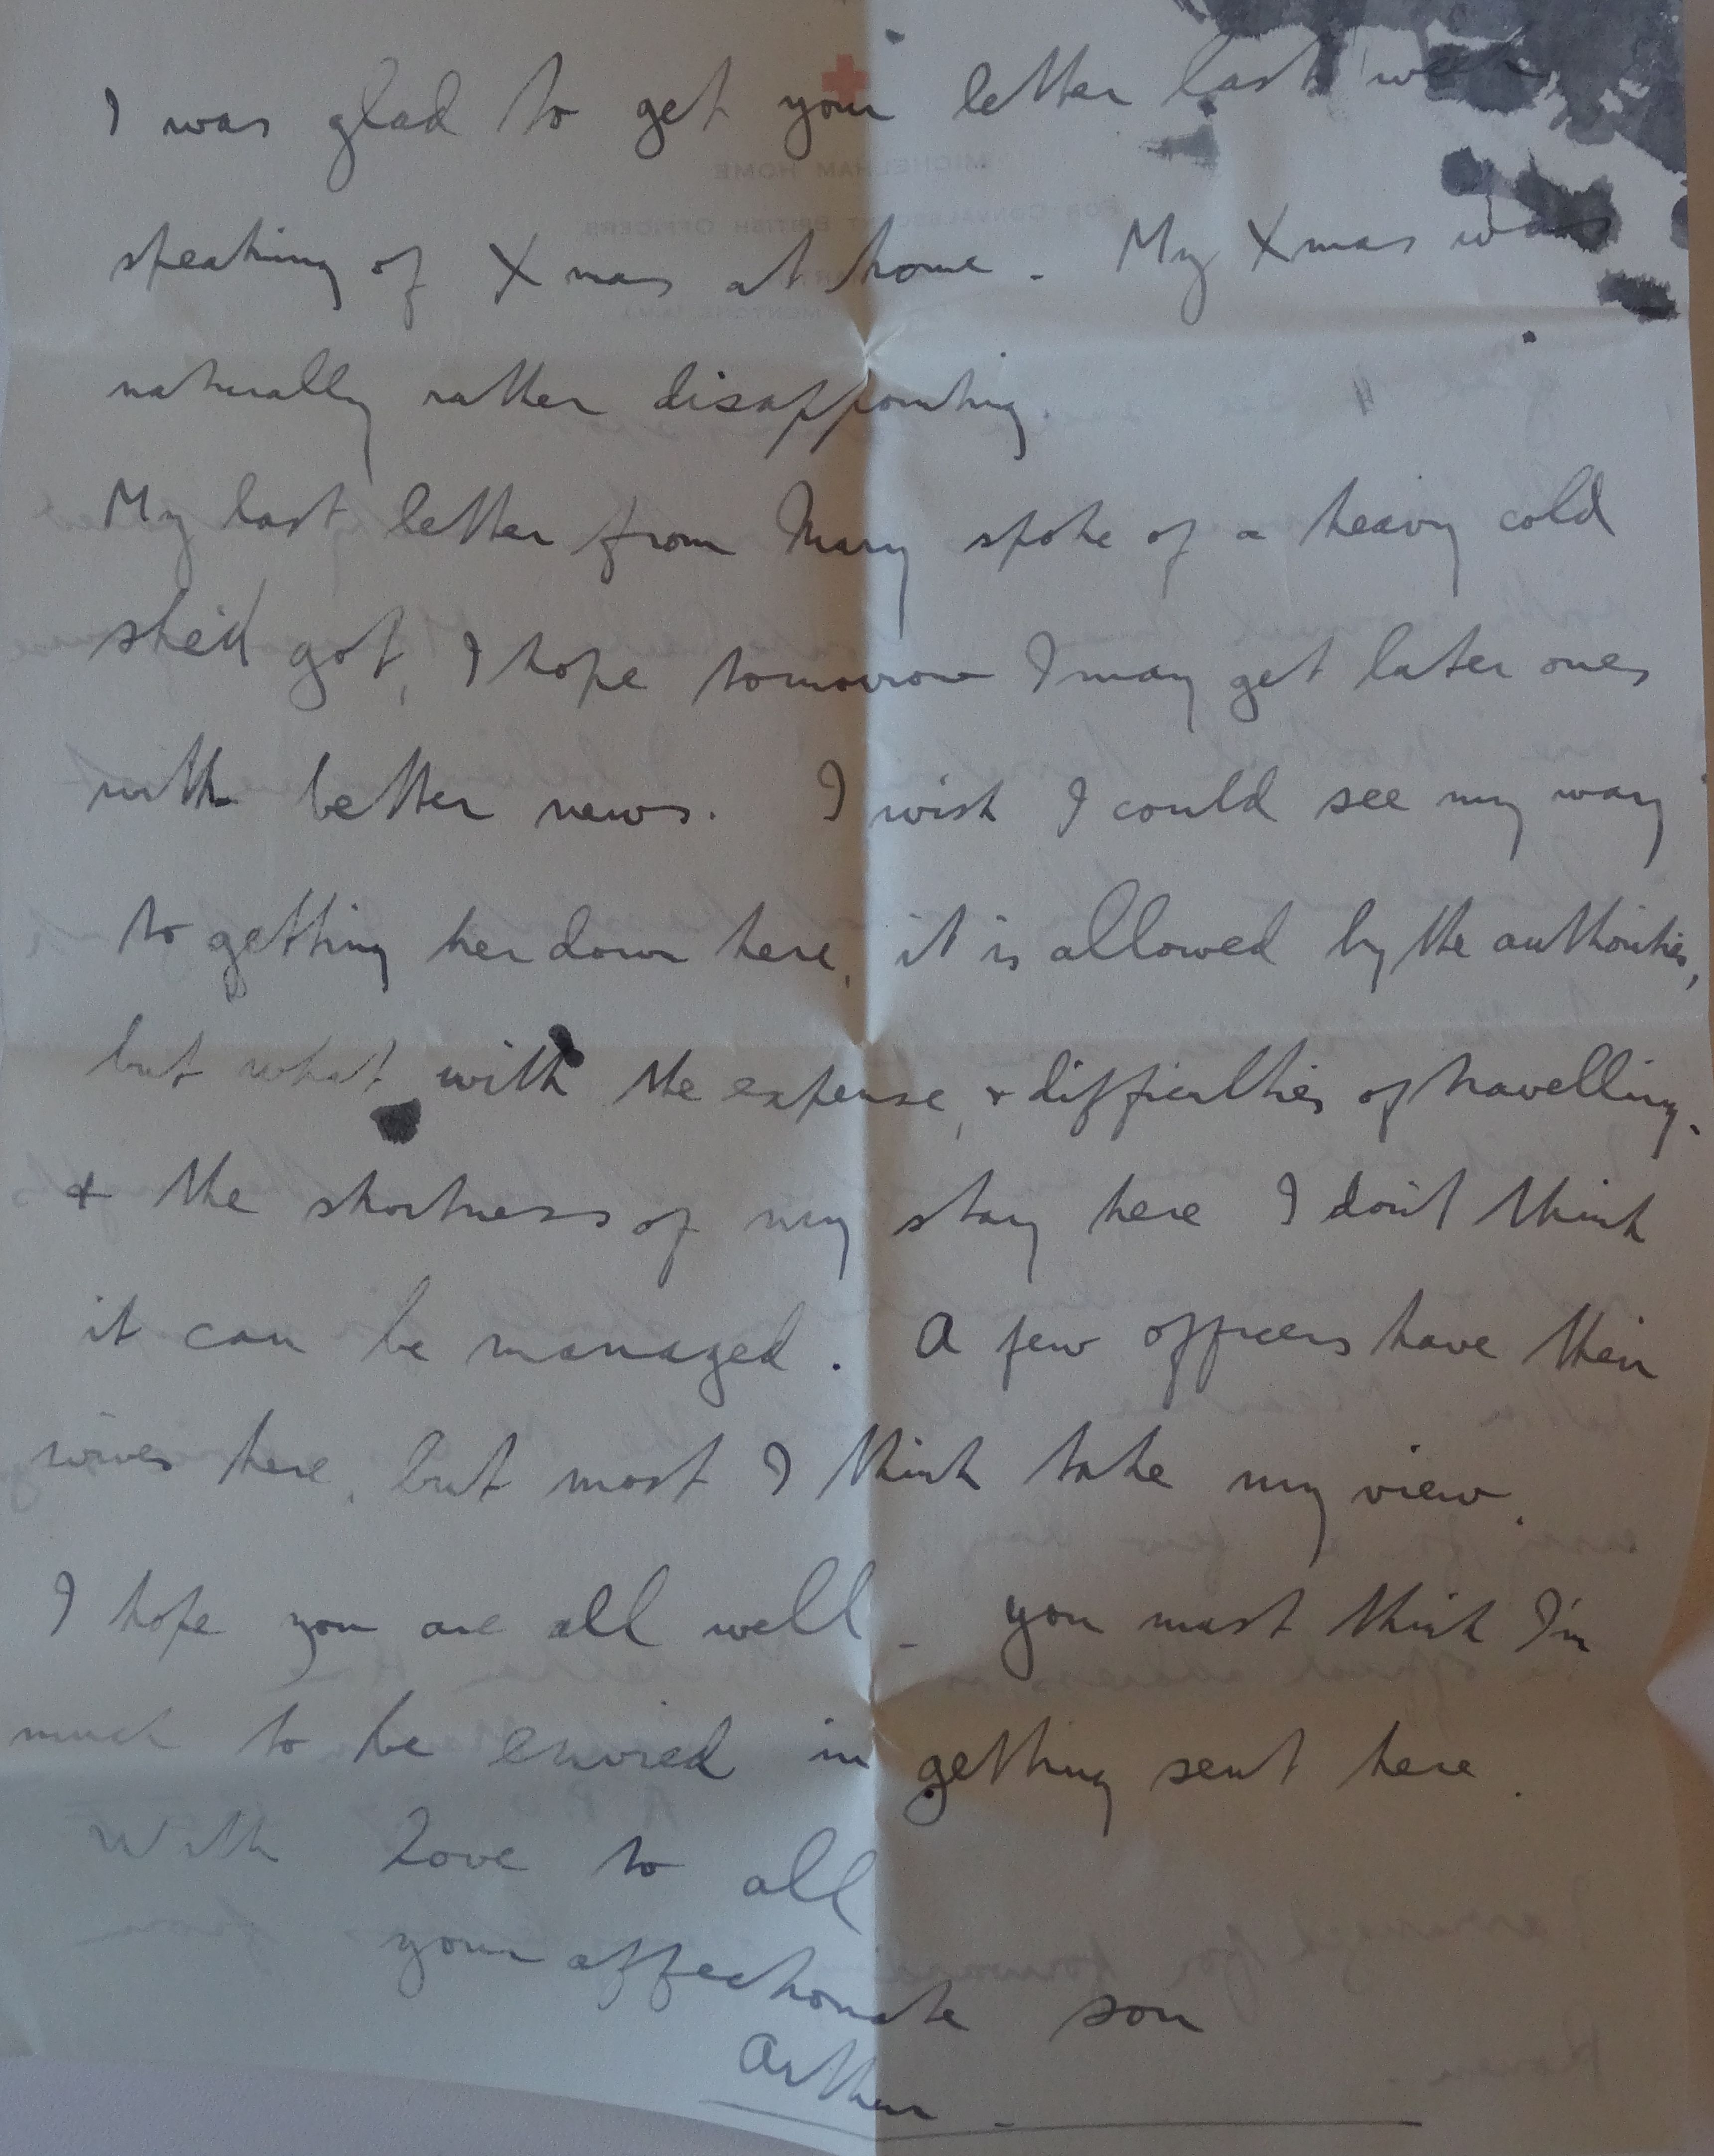 I was glad to get your letter last week
speaking of Xmas at home. My Xmas was
naturally rather disappointing
My last letter from Mary spoke of a heavy cold
she'd got, I hope tomorrow I may get later ones
with better news. I wish I could see my way
to getting her down here, it is allowed by the authorities,
but what with the expense, & difficulties of travelling,
& the shortness of my stay here I don't think
it can be managed. A few officers have their
wives here, but most I think take my view.
I hope you are all well - you must think I'm
much to be envied in getting sent here.
With love to all
your affectionate son
Arthur.
MICHELHAM HOME
FOR CONVALESCENT BRITISH OFFICERS